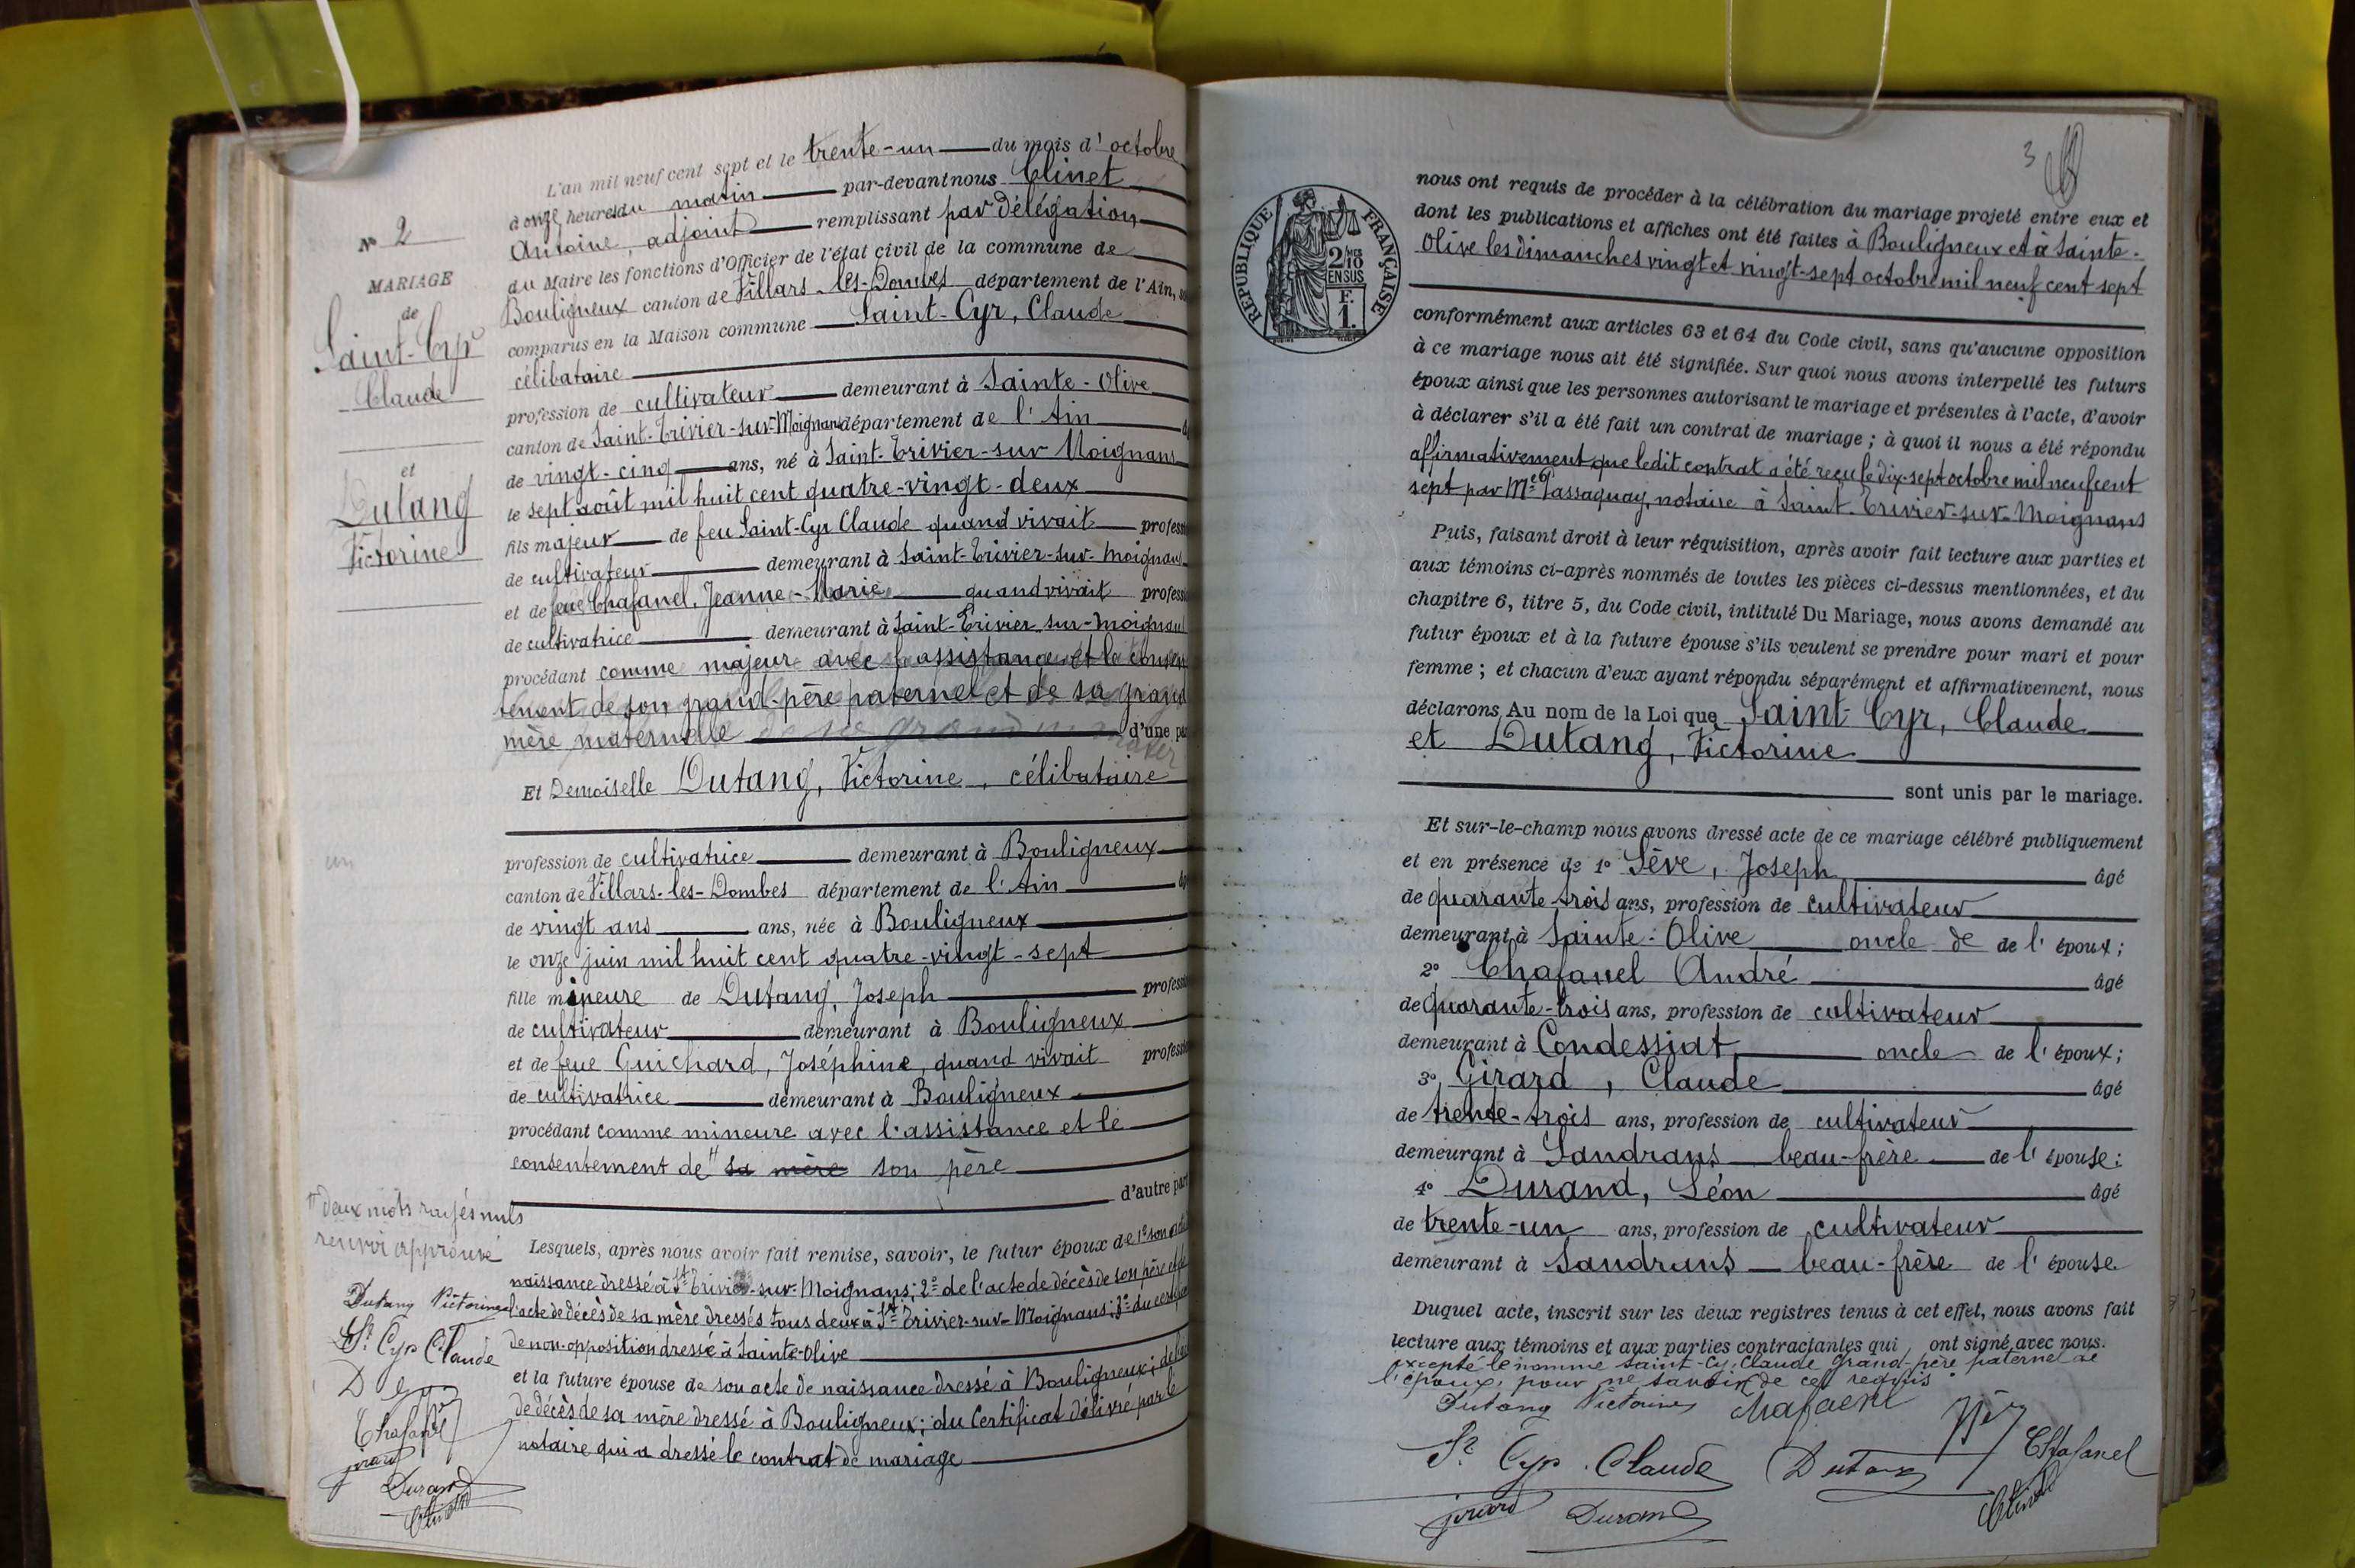 L'an mil neuf cent sept et le trente-un du mois d'octobre
à onze heures du matin par-devant nous Clinet
Antoine, adjoint remplissant par délégation
du Maire les fonctions d'Officier de l'état civil de la commune de
Bouligneux canton de Villars-les-Dombes département de l'Ain,
comparus en la Maison commune Saint-Cyr, Claude
célibataire
profession de cultivateur demeurant à Sainte-Olive
canton de Saint-Trivier-sur-Moignans département de l'Ain
de vingt-cinq ans, né à Saint-Trivier-sur Moignans
le sept août mil huit cent quatre-vingt-deux
fils majeur de feu Saint-Cyr Claude quand vivait profess
de cultivateur demeurant à Saint-Trivier-sur-Moignans
et de feue Chafanel, Jeanne-Marie quand vivait profess
de cultivatrice demeurant à Saint-Trivier-sur-Moignans
procédant comme majeur avec l'assistance et le consen
tement de son grand-père paternel et de sa grand
mère maternelle d'une pa
Et Demoiselle Dutang, Victorine, célibataire
profession de cultivatrice demeurant à Bouligneux
canton de Villars-les-Dombes département de l'Ain
de vingt ans ans, née à Bouligneux
le onze juin mil huit cent quatre-vingt-sept
fille mineure de Dutang, Joseph profess
de cultivateur demeurant à Bouligneux
et de feue Guichard, Joséphine, quand vivait profess
de cultivatrice demeurant à Bouligneux
procédant comme mineure avec l'assistance et le
consentement de sa mère son père
d'autre part
Lesquels, après nous avoir fait remise, savoir, le futur époux de 1º son acte
naissance dressé à St Trivier-sur-Moignans; 2º de l'acte de décès de son père et de
l'acte de décès de sa mère dressés tous deux à St Trivier-sur-Moignans; 3º du
de non-opposition dressé à Sainte-Olive
et la future épouse de son acte de naissance dressé à Bouligneux;
de décès de sa mère dressé à Bouligneux; du Certificat délivré par le
notaire qui a dressé le contrat de mariage
Nº 2
MARIAGE
de
Saint-Cyr
Claude
et
Dutang
Victorine
Deux mots rayés nuls
renvoi approuvé
Dutang Victorine
St Cyr Claude
Chafanel
girard
Durand
Clinet
3
RÉPUBLIQUE FRANÇAISE
2/10
EN SUS
F.
1.
nous ont requis de procéder à la célébration du mariage projeté entre eux et
dont les publications et affiches ont été faites à Bouligneux et à Sainte-
Olive les dimanches vingt et vingt-sept octobre mil neuf cent sept
conformément aux articles 63 et 64 du Code civil, sans qu'aucune opposition
à ce mariage nous ait été signifiée. Sur quoi nous avons interpellé les futurs
époux ainsi que les personnes autorisant le mariage et présentes à l'acte, d'avoir
à déclarer s'il a été fait un contrat de mariage; à quoi il nous a été répondu
affirmativement que ledit contrat a été reçu le dix-sept octobre mil neuf cent
sept par Me Passaquay, notaire à Saint-Trivier-sur-Moignans
Puis, faisant droit à leur réquisition, après avoir fait lecture aux parties et
aux témoins ci-après nommés de toutes les pièces ci-dessus mentionnées, et du
chapitre 6, titre 5, du Code civil, intitulé Du Mariage, nous avons demandé au
futur époux et à la future épouse s'ils veulent se prendre pour mari et pour
femme; et chacun d'eux ayant répondu séparément et affirmativement, nous
déclarons, Au nom de la Loi que Saint-Cyr, Claude
et Dutang, Victorine
sont unis par le mariage.
Et sur-le-champ nous avons dressé acte de ce mariage célébré publiquement
et en présence de 1º Sève, Joseph âgé
de quarante-trois ans, profession de cultivateur
demeurant à Sainte-Olive oncle de de l'époux;
2º Chafanel André âgé
de quarante-trois ans, profession de cultivateur
demeurant à Condessiat oncle de l'époux;
3º Girard, Claude âgé
de trente-trois ans, profession de cultivateur
demeurant à Sandrans beau-frère de l'épouse;
4º Durand, Léon âgé
de trente-un ans, profession de cultivateur
demeurant à Sandrans beau-frère de l'épouse
Duquel acte, inscrit sur les deux registres tenus à cet effet, nous avons fait
lecture aux témoins et aux parties contractantes qui, ont signé avec nous.
excepté le nommé Saint-Cyr Claude grand-père paternel de
l'époux, pour ne savoir de ce requis
Dutang Victorine Chafanel
St Cyr Claude Dutang Chafanel
girard Durand Clinet